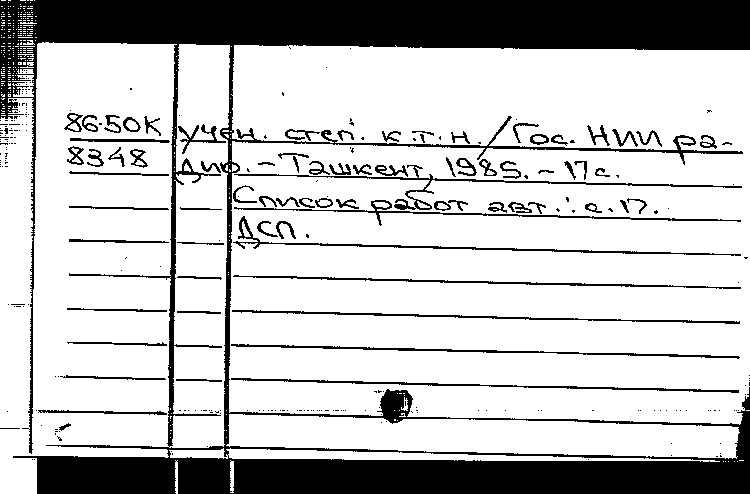 86-50К учен. степ. к.т.н. / Гос. НИИ ра-
8348 дио. - Ташкент, 1985. - 17 с.
Список работ авт.: с. 17.
ДСП.